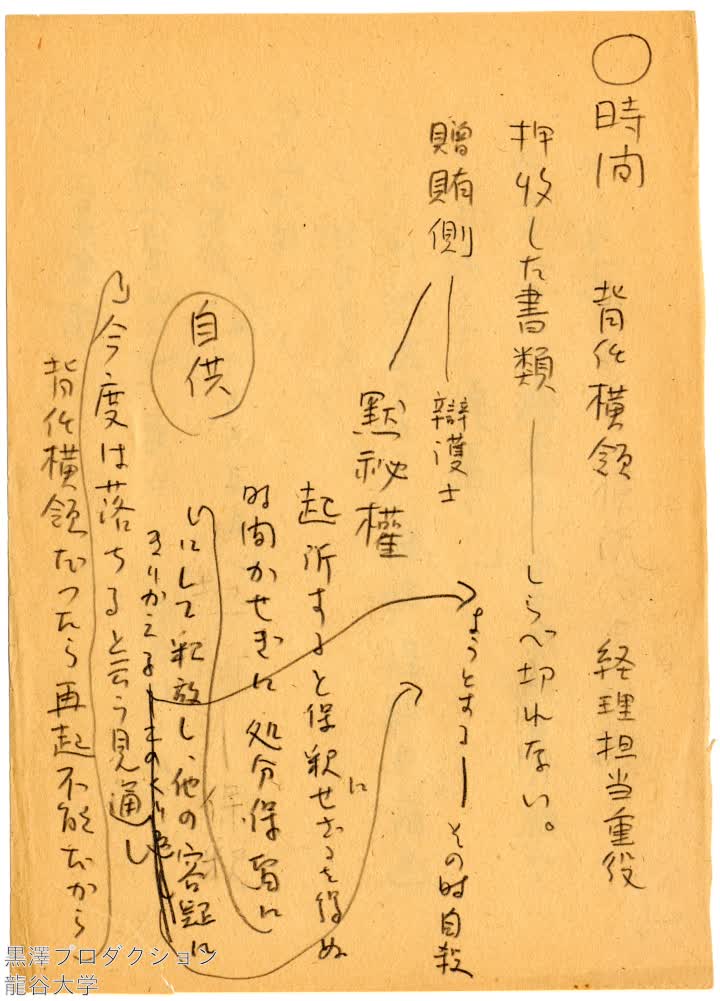 ○時间 背任横領 経理担当重役
押收した書類――しらべ切れない。
贈賄側――辯護士 ようとする―その時自殺
黙祕權
起所すると保釈にせざるを得ぬ
时間かせぎに処分保留に
いにして釈放し、他の容疑に
きりかえる―そのくり返し
自供
」今度は落ちると云う見通し
背任横領だったら再起不能だから
黒澤プロダクション
龍谷大学